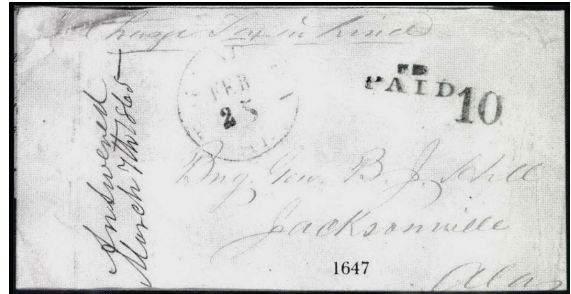 Charge Tax in Kind
FEB
25
PAID 10
Answered
March 7th 1865
Brig. Gen. B. J. Hill
Jacksonville
Ala
1647